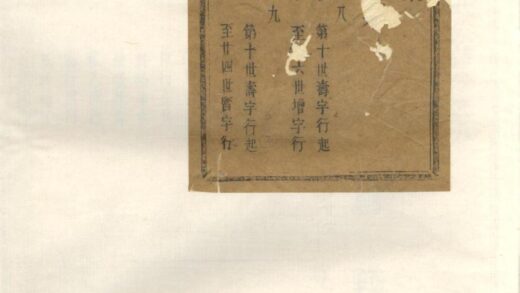 八
第十世壽字行起
至□六世增字行
九
第十世壽字行起
至廿四世晋字行